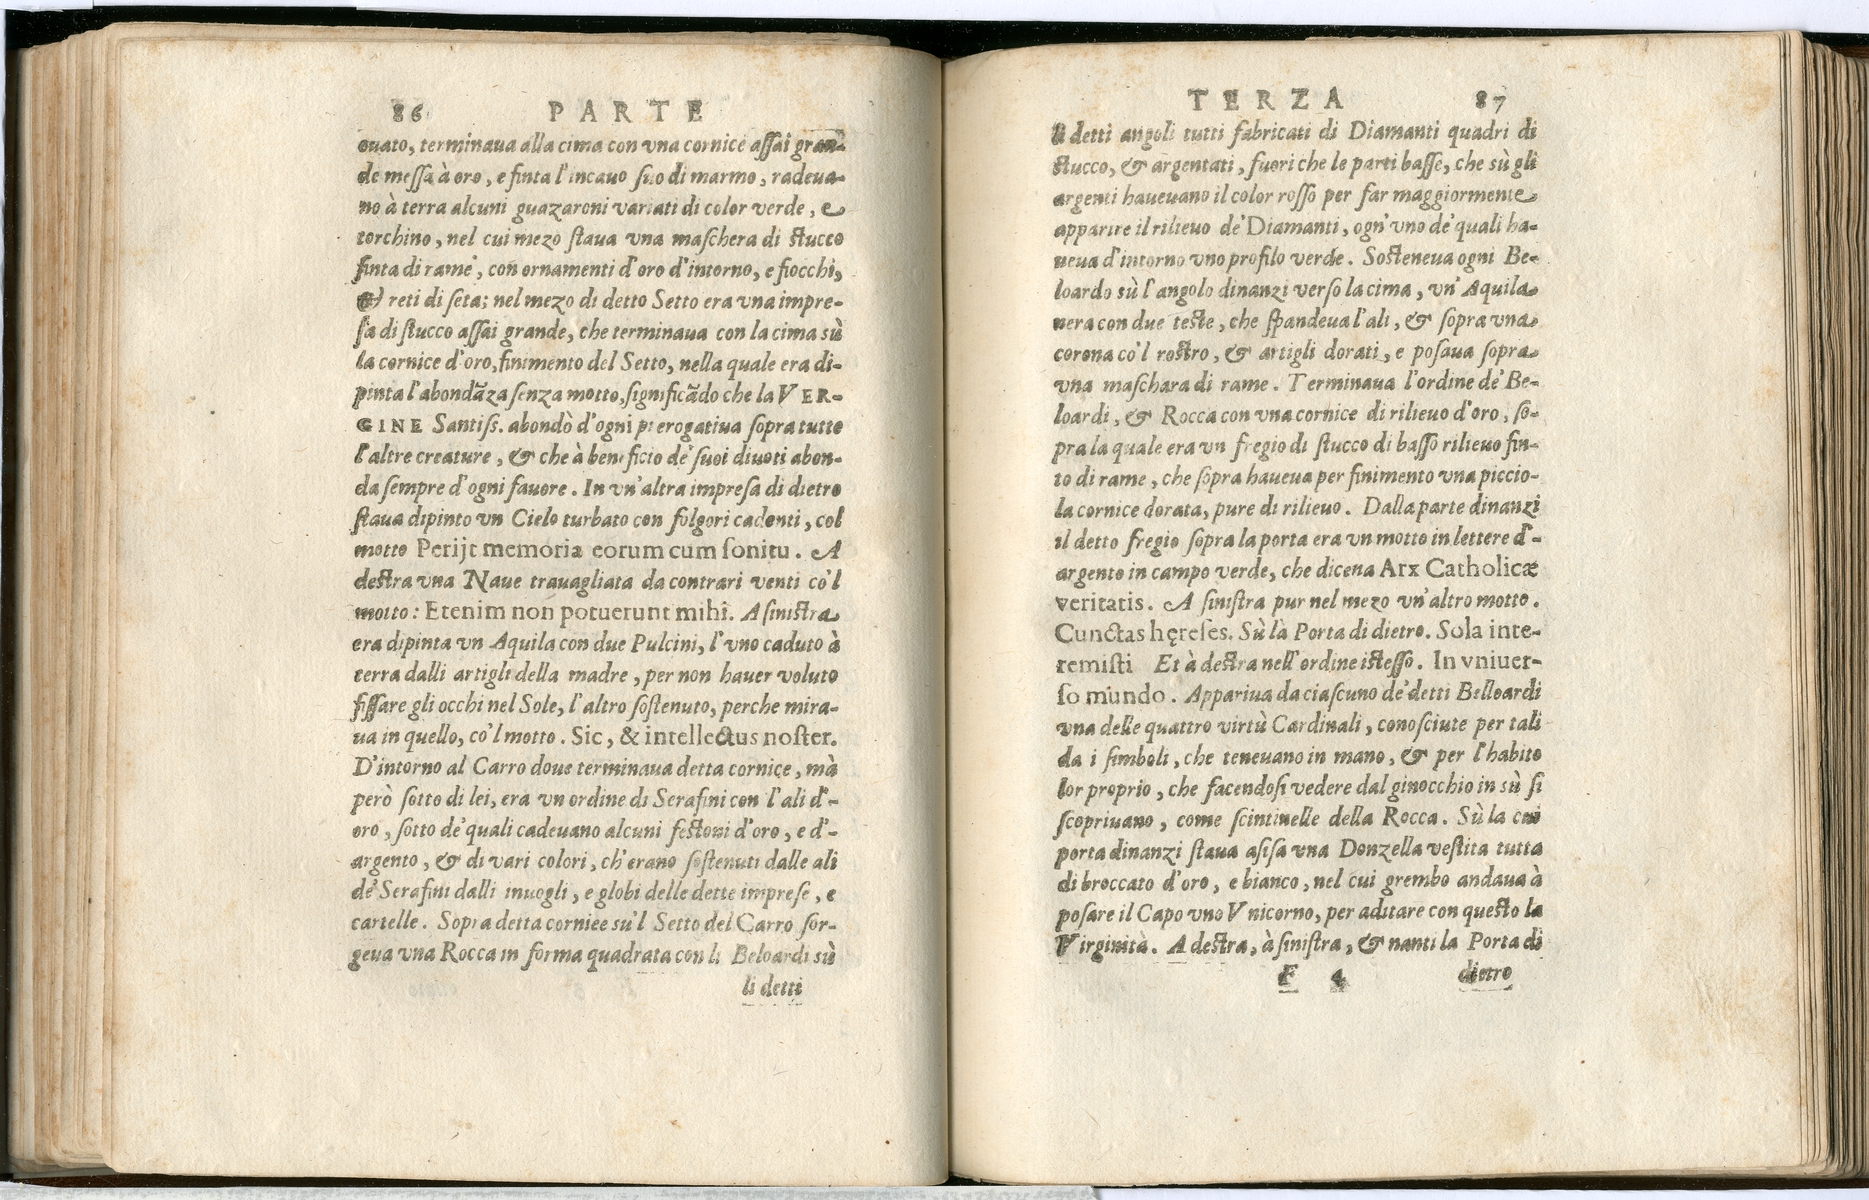 86 PARTE
ouato, terminaua alla cima con vna cornice assai gran-
de messa à oro, e finta l'incauo suo di marmo, radeua-
no à terra alcuni guazaroni variati di color verde, e
torchino, nel cui mezo staua vna maschera di stucco
finta di rame, con ornamenti d'oro d'intorno, e fiocchi,
& reti di seta; nel mezo di detto Setto era vna impre-
sa di stucco assai grande, che terminaua con la cima sù
la cornice d'oro, finimento del Setto, nella quale era di-
pinta l'abondãza senza motto, significãdo che la VER-
GINE Santiss. abondò d'ogni prerogatiua sopra tutte
l'altre creature, & che à beneficio de' suoi diuoti abon-
da sempre d'ogni fauore. In vn'altra impresa di dietro
staua dipinto vn Cielo turbato con folgori cadenti, col
motto Perijt memoria eorum cum sonitu. A
destra vna Naue trauagliata da contrari venti co'l
motto: Etenim non potuerunt mihi. A sinistra
era dipinta vn Aquila con due Pulcini, l'vno caduto à
terra dalli artigli della madre, per non hauer voluto
fissare gli occhi nel Sole, l'altro sostenuto, perche mira-
ua in quello, co'l motto. Sic, & intellectus noster.
D'intorno al Carro doue terminaua detta cornice, mà
però sotto di lei, era vn ordine di Serafini con l'ali d'-
oro, sotto de' quali cadeuano alcuni festoni d'oro, e d'-
argento, & di vari colori, ch'erano sostenuti dalle ali
de' Serafini dalli inuogli, e globi delle dette imprese, e
cartelle. Sopra detta corniee su'l Setto del Carro sor-
geua vna Rocca in forma quadrata con li Beloardi sù
li detti
TERZA 87
li detti angoli tutti fabricati di Diamanti quadri di
stucco, & argentati, fuori che le parti basse, che sù gli
argenti haueuano il color rosso per far maggiormente
apparire il rilieuo de' Diamanti, ogn'vno de' quali ha-
ueua d'intorno vno profilo verde. Sosteneua ogni Be-
loardo sù l'angolo dinanzi verso la cima, vn' Aquila
nera con due teste, che spandeua l'ali, & sopra vna
corona co'l rostro, & artigli dorati, e posaua sopra
vna maschara di rame. Terminaua l'ordine de' Be-
loardi, & Rocca con vna cornice di rilieuo d'oro, so-
pra la quale era vn fregio di stucco di basso rilieuo fin-
to di rame, che sopra haueua per finimento vna piccio-
la cornice dorata, pure di rilieuo. Dalla parte dinanzi
il detto fregio sopra la porta era vn motto in lettere d'-
argento in campo verde, che dicena Arx Catholicæ
veritatis. A sinistra pur nel mezo vn'altro motto.
Cunctas hęreses. Sù la Porta di dietro. Sola inte-
remisti Et à destra nell'ordine istesso. In vniuer-
so mundo. Appariua da ciascuno de' detti Belloardi
vna delle quattro virtù Cardinali, conosciute per tali
da i simboli, che teneuano in mano, & per l'habito
lor proprio, che facendosi vedere dal ginocchio in sù si
scopriuano, come scintinelle della Rocca. Sù la cui
porta dinanzi staua asisa vna Donzella vestita tutta
di broccato d'oro, e bianco, nel cui grembo andaua à
posare il Capo vno Vnicorno, per aditare con questo la
Virginità. A destra, à sinistra, & nanti la Porta di
F 4 dietro